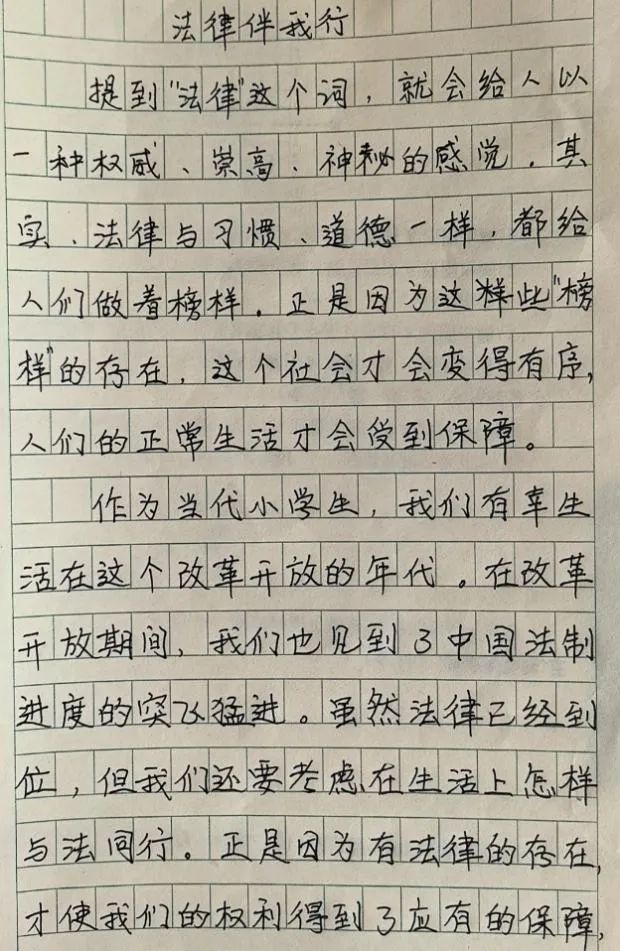 法律伴我行
提到"法律"这个词，就会给人以
一种权威、崇高、神秘的感觉。其
实、法律与习惯、道德一样，都给
人们做着榜样。正是因为这些"榜
样"的存在，这个社会才会变得有序，
人们的正常生活才会受到保障。
作为当代小学生，我们有幸生
活在这个改革开放的年代。在改革
开放期间，我们也见到了中国法制
进度的突飞猛进。虽然法律已经到
位，但我们还要考虑在生活上怎样
与法同行。正是因为有法律的存在，
才使我们的权利得到了应有的保障，